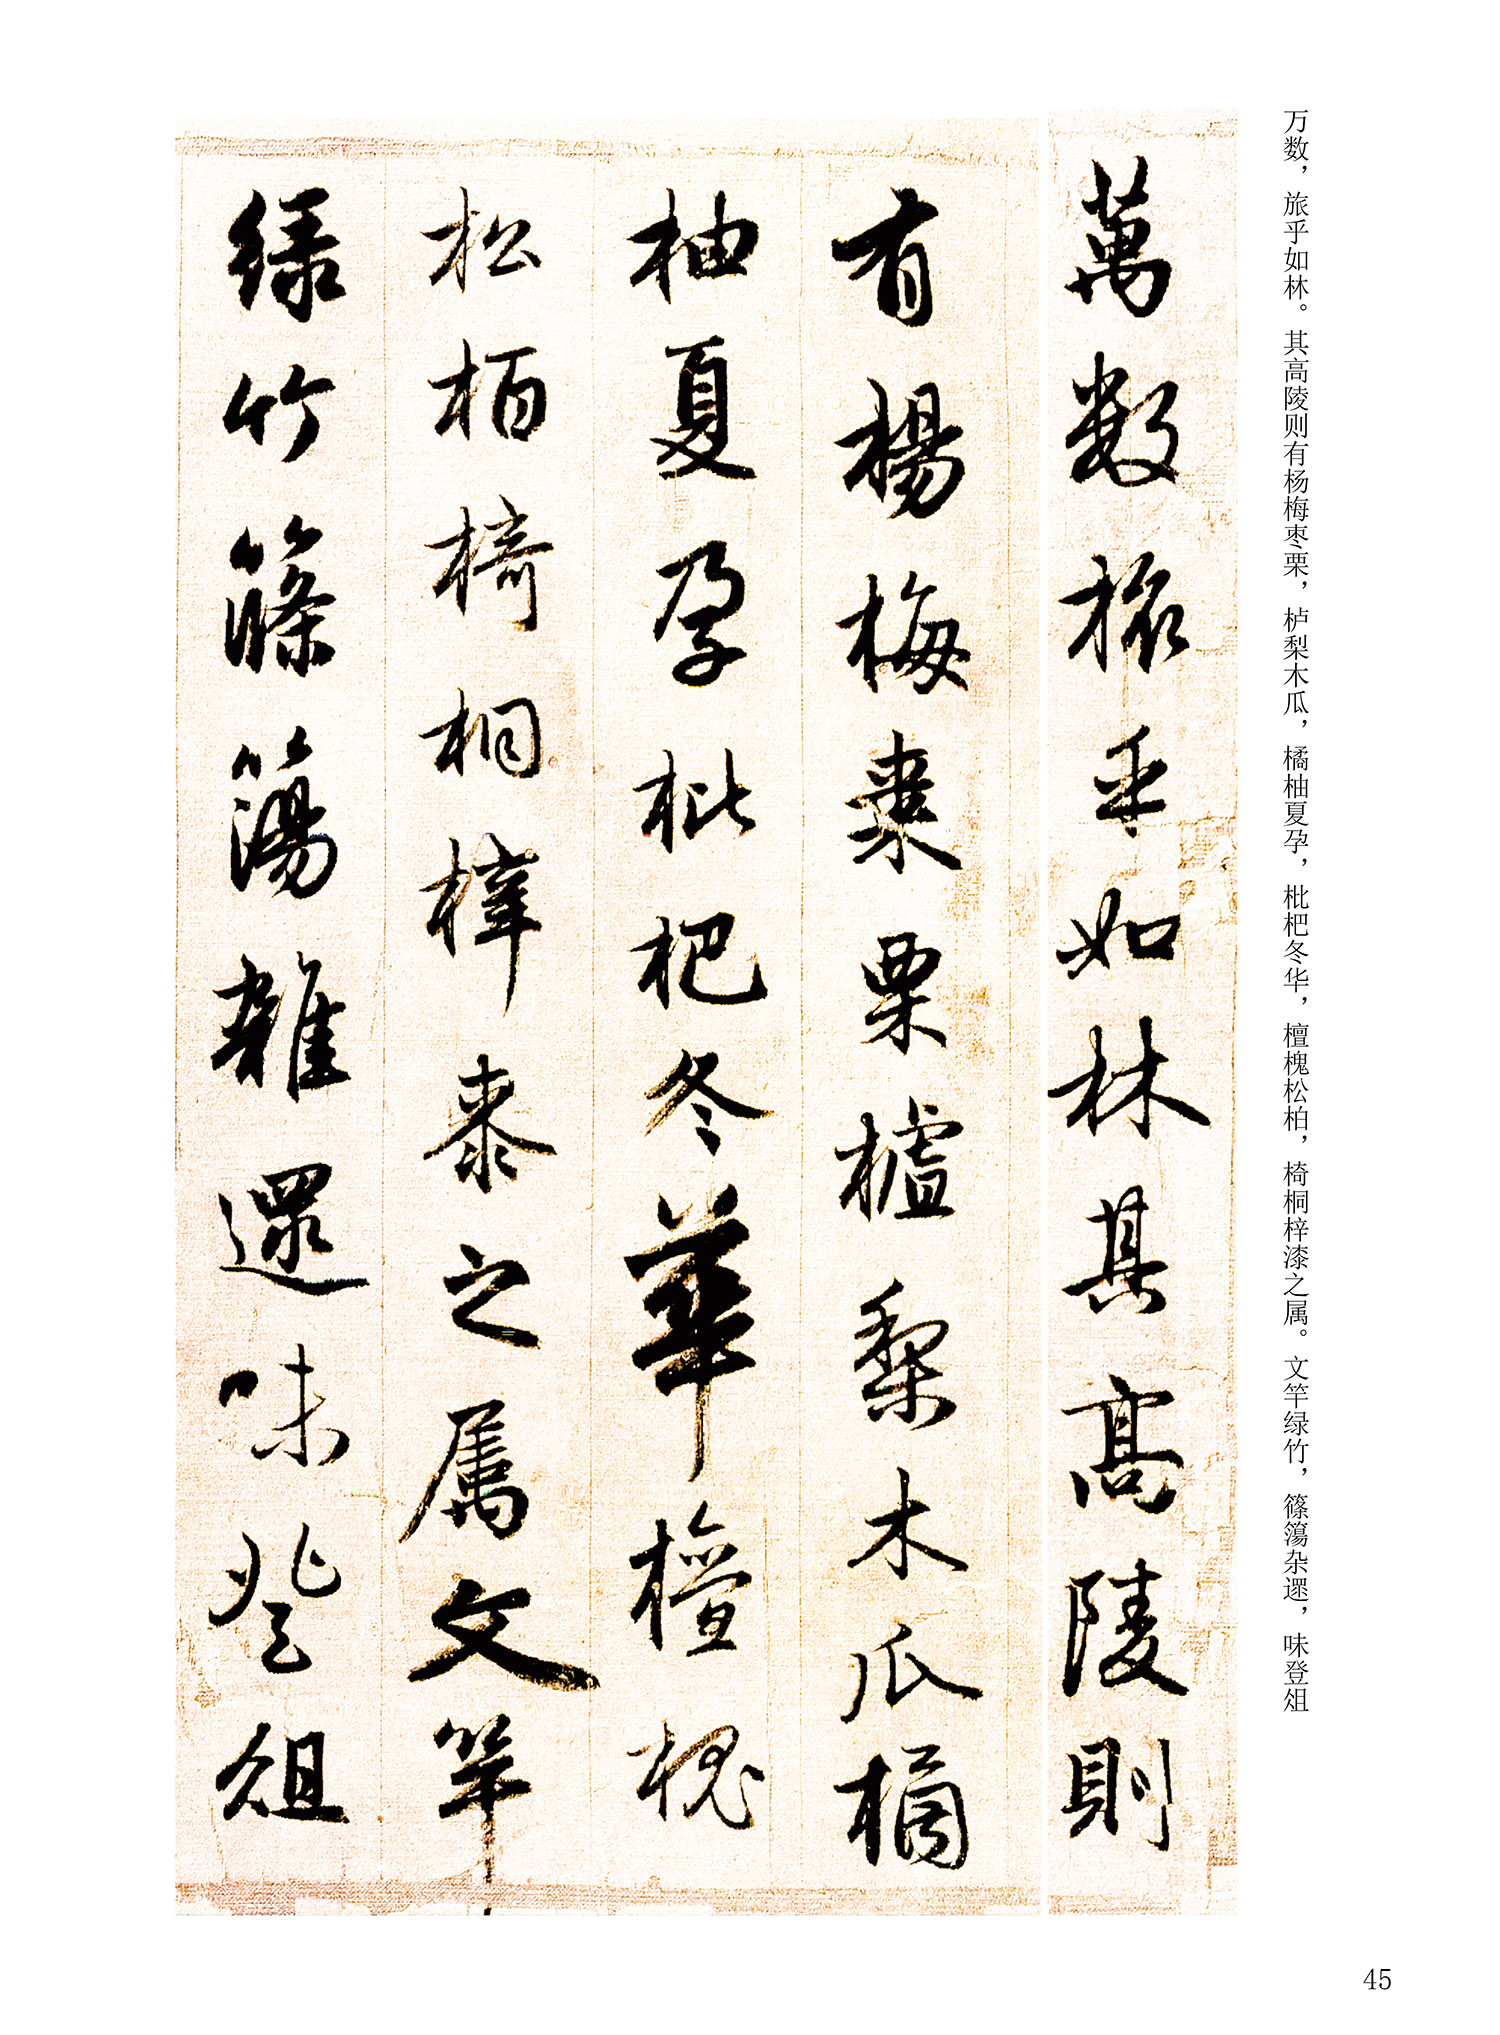 万数，旅乎如林。其高陵则有杨梅枣栗，栌梨木瓜，橘柚夏孕，枇杷冬华，檀槐松柏，椅桐梓漆之属。文竿绿竹，篠簜杂遝，味登俎
萬數旅乎如林其高陵則
有楊梅棗栗櫨梨木瓜橘
柚夏孕枇杷冬華檀槐
松柏椅桐梓桼之属文竿
緑竹篠簜雜遝味登俎
45